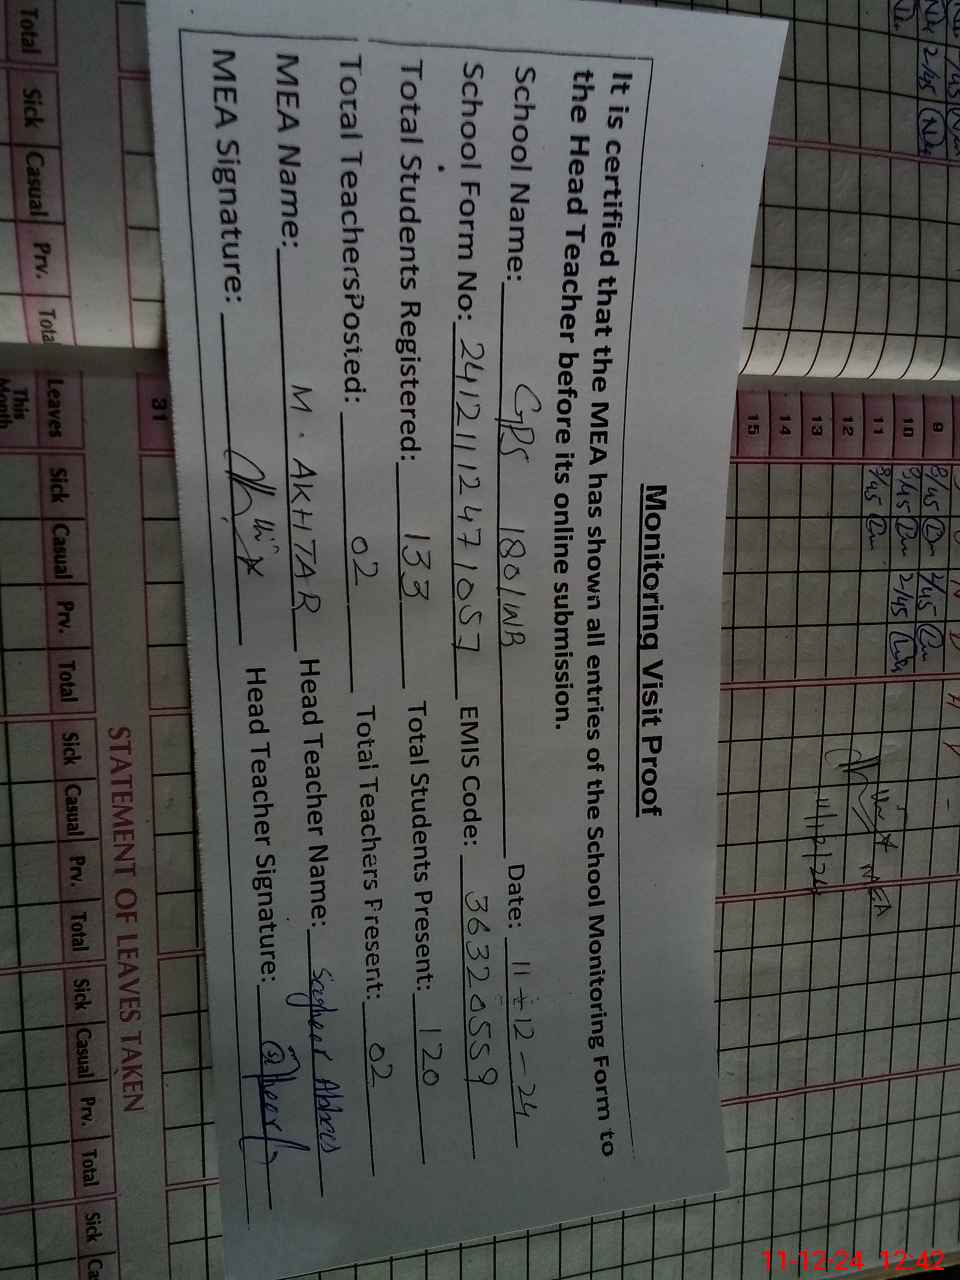 Monitoring Visit Proof
It is certified that the MEA has shown all entries of the School Monitoring Form to
the Head Teacher before its online submission.
School Name: GPS 180/WB Date: 11-12-24
School Form No: 24121112471057 EMIS Code: 36320559
Total Students Registered: 133 Total Students Present: 120
Total TeachersPosted: 02 Total Teachers Present: 02
MEA Name: M. AKHTAR Head Teacher Name: Sagheer Abbas
MEA Signature: Head Teacher Signature:
9 8/45 2/45
10 8/45 2/45
11 8/45
12
13
14
15
MEA
11/12/24
31
Total Sick Casual Prv. Total
Leaves Sick Casual Prv. Total Sick Casual Prv. Total Sick Casual Prv. Total Sick Ca
This
Month
STATEMENT OF LEAVES TAKEN
11-12-24 12:42